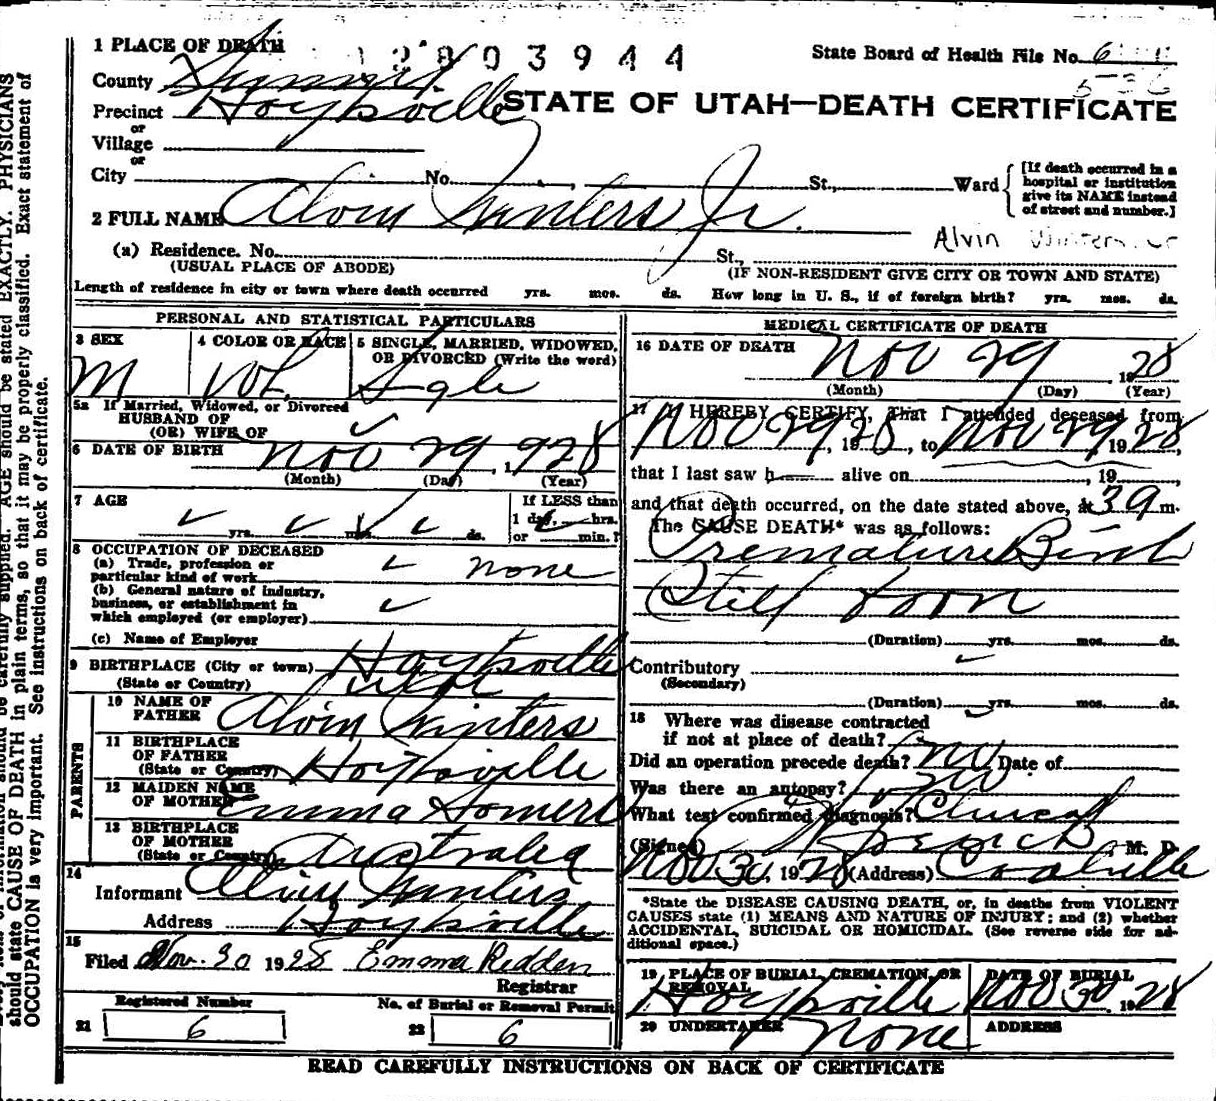 1 PLACE OF DEATH
2803944
State Board of Health File No. 6
536
County Summit
Precinct Hoytsville
STATE OF UTAH—DEATH CERTIFICATE
or
Village
or
City No. St., Ward
[If death occurred in a hospital or institution give its NAME instead of street and number.]
2 FULL NAME Alvin Winters Jr.
Alvin Winters Jr
(a) Residence. No. St.,
(USUAL PLACE OF ABODE) (IF NON-RESIDENT GIVE CITY OR TOWN AND STATE)
Length of residence in city or town where death occurred yrs. mos. ds. How long in U. S., if of foreign birth? yrs. mos. ds.
PERSONAL AND STATISTICAL PARTICULARS
3 SEX
M
4 COLOR OR RACE
Wh.
5 SINGLE, MARRIED, WIDOWED,
OR DIVORCED (Write the word)
Sgle
5a If Married, Widowed, or Divorced
HUSBAND OF
(OR) WIFE OF
6 DATE OF BIRTH Nov 29, 928
(Month) (Day) (Year)
7 AGE
yrs. mos. ds.
If LESS than
1 day, hrs.
or min.?
8 OCCUPATION OF DECEASED
(a) Trade, profession or
particular kind of work none
(b) General nature of industry,
business, or establishment in
which employed (or employer)
(c) Name of Employer
9 BIRTHPLACE (City or town) Hoytsville
(State or Country) Utah
PARENTS
10 NAME OF
FATHER Alvin Winters
11 BIRTHPLACE
OF FATHER
(State or Country) Hoytsville
12 MAIDEN NAME
OF MOTHER Emma
13 BIRTHPLACE
OF MOTHER
(State or Country) Australia
14
Informant Alvin Winters
Address Hoytsville
15
Filed Nov. 30 1928 Emma Redden
Registrar
Registered Number
21 6
No. of Burial or Removal Permit
22 6
MEDICAL CERTIFICATE OF DEATH
16 DATE OF DEATH Nov 29, 1928
(Month) (Day) (Year)
17 I HEREBY CERTIFY, That I attended deceased from
Nov 29, 1928, to Nov 29 1928
that I last saw h alive on , 19
and that death occurred, on the date stated above, at 39 m.
The CAUSE DEATH* was as follows:
Premature Birth
Still born
(Duration) yrs. mos. ds.
Contributory
(Secondary)
(Duration) yrs. mos. ds.
18 Where was disease contracted
if not at place of death?
Did an operation precede death? no Date of
Was there an autopsy? no
What test confirmed diagnosis? Clinical
(Signed) , M. D.
Nov 30, 1928 (Address) Coalville
*State the DISEASE CAUSING DEATH, or, in deaths from VIOLENT
CAUSES state (1) MEANS AND NATURE OF INJURY; and (2) whether
ACCIDENTAL, SUICIDAL OR HOMICIDAL. (See reverse side for ad-
ditional space.)
19 PLACE OF BURIAL, CREMATION, OR
REMOVAL
Hoytsville
DATE OF BURIAL
Nov 30, 1928
20 UNDERTAKER none
ADDRESS
READ CAREFULLY INSTRUCTIONS ON BACK OF CERTIFICATE
carefully supplied. AGE should be stated EXACTLY. PHYSICIANS
should state CAUSE OF DEATH in plain terms, so that it may be properly classified. Exact statement of
OCCUPATION is very important. See instructions on back of certificate.